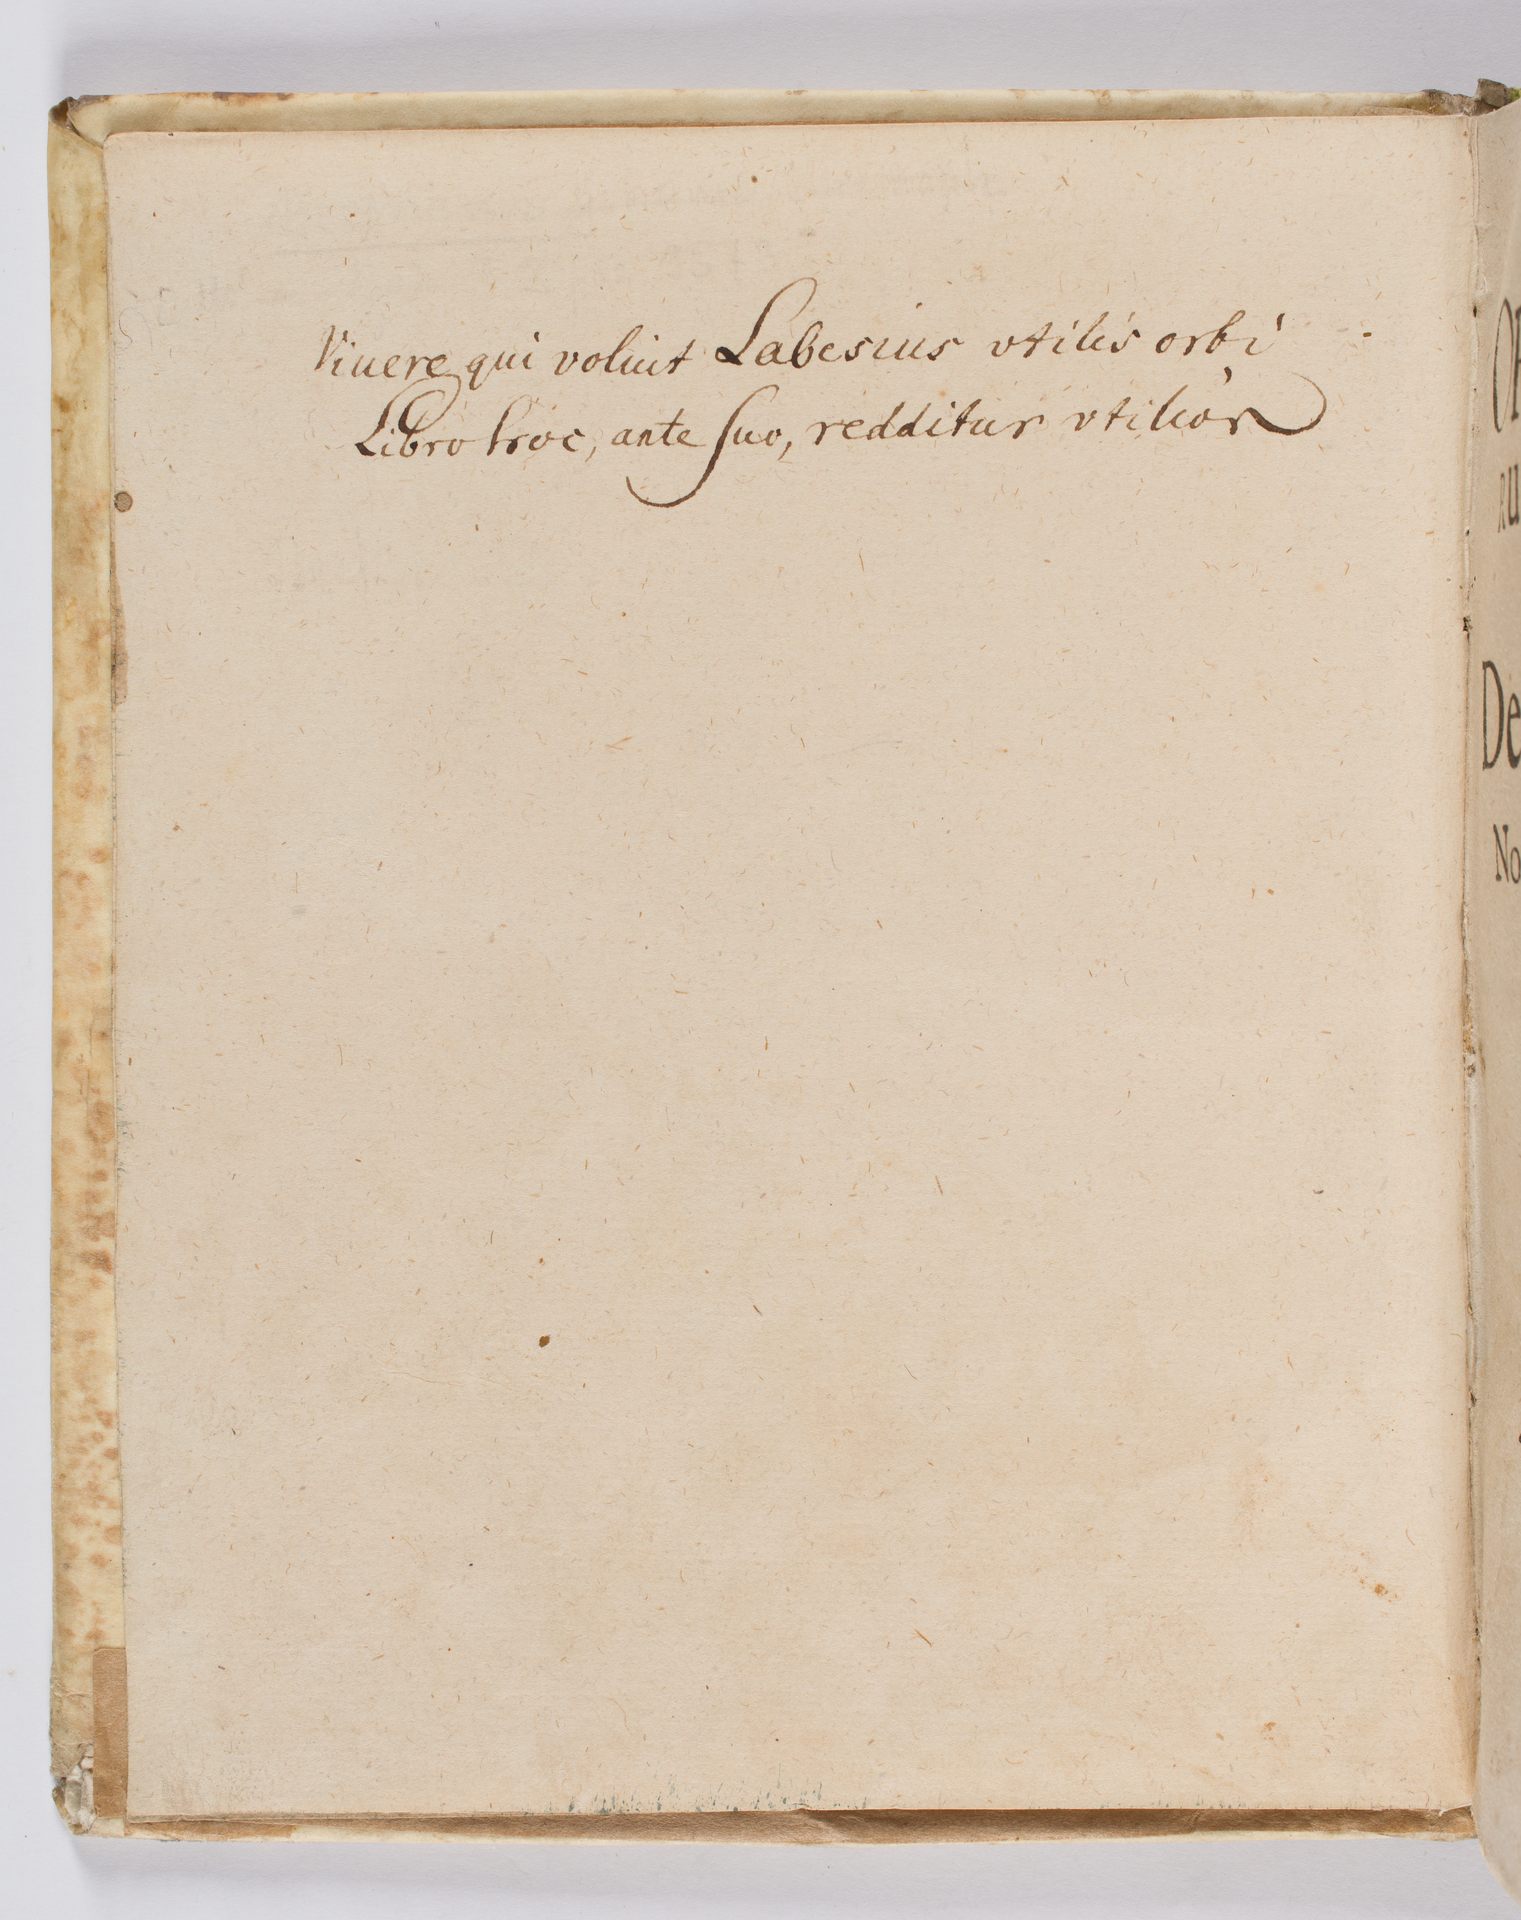 Viuere qui voluit Labesius vtilis orbi
Libro hoc, ante suo, redditur vtilior
De
No